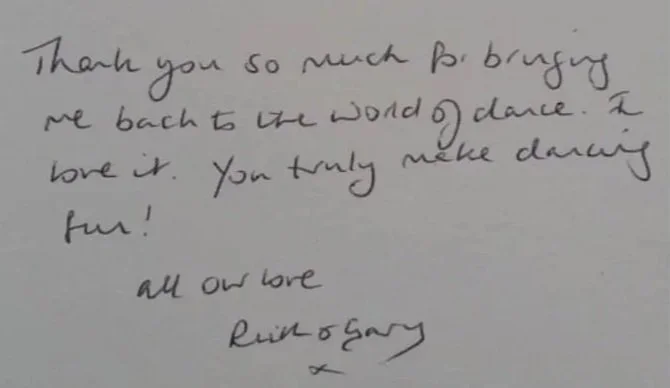 Thank you so much for bringing
me back to the world of dance. I
love it. You truly make dancing
fun!
all our love
Ruth & Gary
x